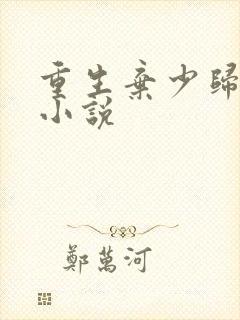 重生棄少歸
小說
鄭萬河